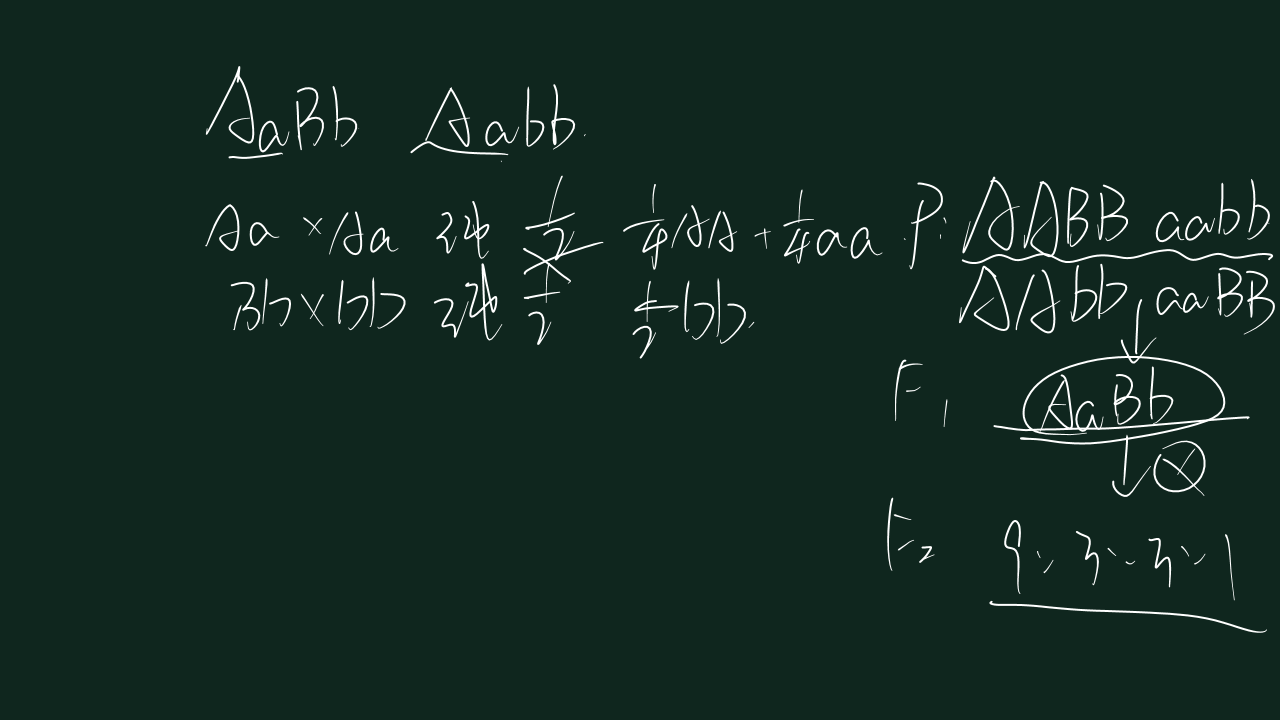 AaBb Aabb.
Aa × Aa 纯 1/2 1/4AA + 1/4aa
Bb × bb 纯 1/2 1/2bb.
P: AABB aabb
AAbb, aaBB
F1 AaBb
F2 9:3:3:1